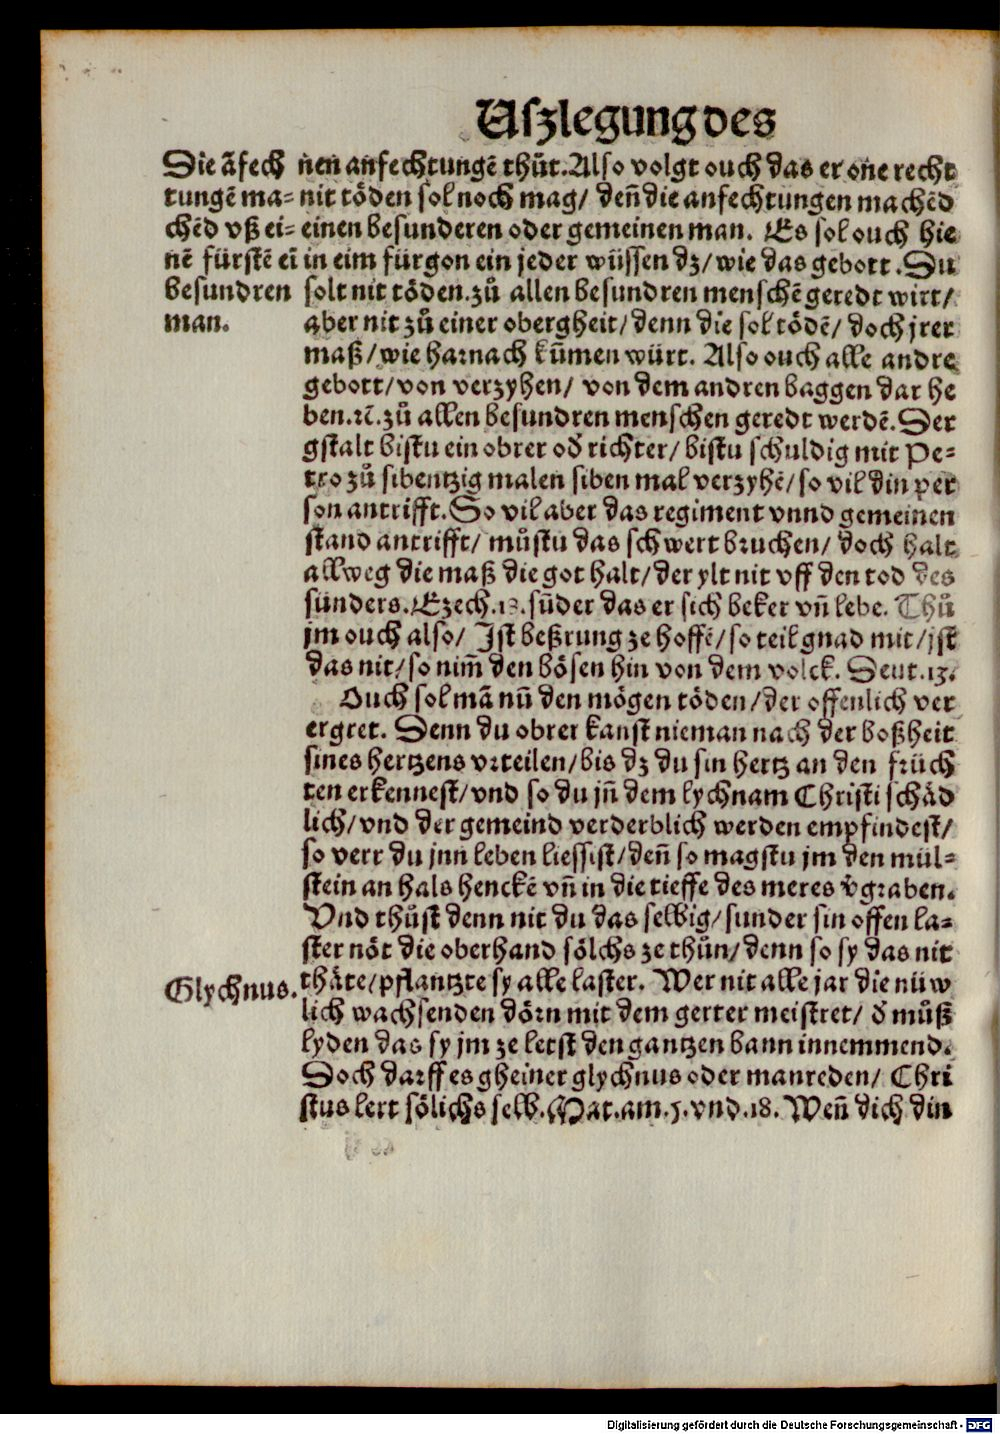 Uſzlegung des
Die ãfech
tungẽ ma-
chẽd vß ei-
nẽ fürſtẽ eī
beſundren
man.
nen anfechtungẽ thůt. Alſo volgt ouch das er one recht
nit töden ſol noch mag/ deñ die anfechtungen machẽd
einen beſunderen oder gemeinen man. Es ſol ouch hie
in eim fürgon ein jeder wüſſen dz/ wie das gebott. Du
ſolt nit töden. zů allen beſundren menſchẽ geredt wirt/
aber nit zů einer obergheit/ denn die ſol tödẽ/ doch jrer
maß/ wie harnach kūmen würt. Alſo ouch alle andre
gebott/ von verzyhen/ von dem andren baggen dar he
ben. ꝛc̃. zů allen beſundren menſchen geredt werdẽ. Der
gſtalt biſtu ein obrer oď richter/ biſtu ſchuldig mit Pe-
tro zů ſibentzig malen ſiben mal verzyhẽ/ ſo vil din per
ſon antrifft. So vil aber das regiment vnnd gemeinen
ſtand antrifft/ můſtu das ſchwert bruchen/ doch halt
allweg die maß die got halt/ der ylt nit vff den tod des
ſünders. Ezech. 18. ſūder das er ſich beker vñ lebe. Thů
jm ouch alſo/ Iſt beßrung ze hoffẽ/ ſo teil gnad mit/ jſt
das nit/ ſo nim̃ den böſen hin von dem volck. Deut. 13.
Ouch ſol mã nū den mögen töden/ der offenlich ver
ergret. Denn du obrer kanſt nieman nach der boßheit
ſines hertzens vrteilen/ bis dz du ſin hertz an den früch
ten erkenneſt/ vnd ſo du jñ dem lychnam Chriſti ſchäd
lich/ vnd der gemeind verderblich werden empfindeſt/
ſo verr du jnn leben lieſſiſt/ deñ ſo magſtu jm den mül-
ſtein an hals henckẽ vñ in die tieffe des meres v̂graben.
Vnd thůſt denn nit du das ſelbig/ ſunder ſin offen la-
ſter nöt die oberhand ſölchs ze thůn/ denn ſo ſy das nit
Glychnus.
thäte/ pflantzte ſy alle laſter. Wer nit alle jar die nüw
lich wachſenden dörn mit dem gerter meiſtret/ ď můß
lyden das ſy jm ze letſt den gantzen bann innemmend.
Doch darff es gheiner glychnus oder manreden/ Chri
ſtus lert ſölichs ſelb. Mat. am. 5. vnd. 18. Weñ dich din
Digitalisierung gefördert durch die Deutsche Forschungsgemeinschaft - DFG